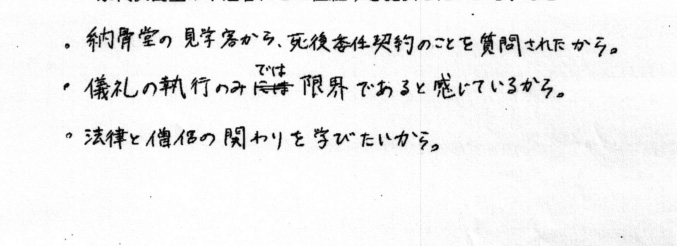 。納骨堂の見学客から、死後委任契約のことを質問されたから。
・儀礼の執行のみでは限界であると感じているから。
。法律と僧侶の関わりを学びたいから。